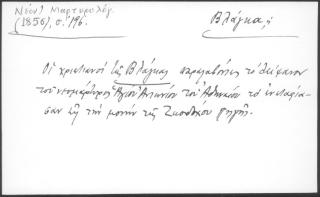 Νέον Μαρτυρολόγ.
(1856), σ. 196.
Βλάγκα;
Οἱ χριστιανοί τῆς Βλάγκας παραλαβόντες τό λείψανον
τοῦ νεομάρτυρος Ἁγίου Ἀντωνίου τοῦ Ἀθηναίου τό ἐνεταφία-
σαν εἰς τήν μονήν τῆς Ζωοδόχου Πηγῆς.